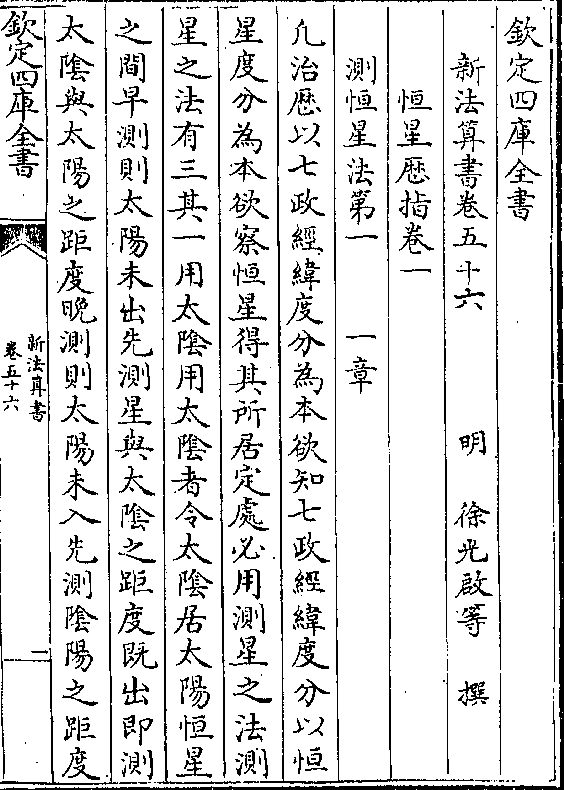 欽定四庫全書
新法算書卷五十六　　明　徐光啟等　撰
恒星歴指卷一
測恒星法第一　一章
凡治歴以七政經緯度分為本欲知七政經緯度分以恒
星度分為本欲察恒星得其所居定處必用測星之法測
星之法有三其一用太隂用太隂者令太隂居太陽恒星
之間早測則太陽未出先測星與太隂之距度既出即測
太隂與太陽之距度晩測則太陽未入先測隂陽之距度
欽定四庫全書
新法算書
卷五十六
一